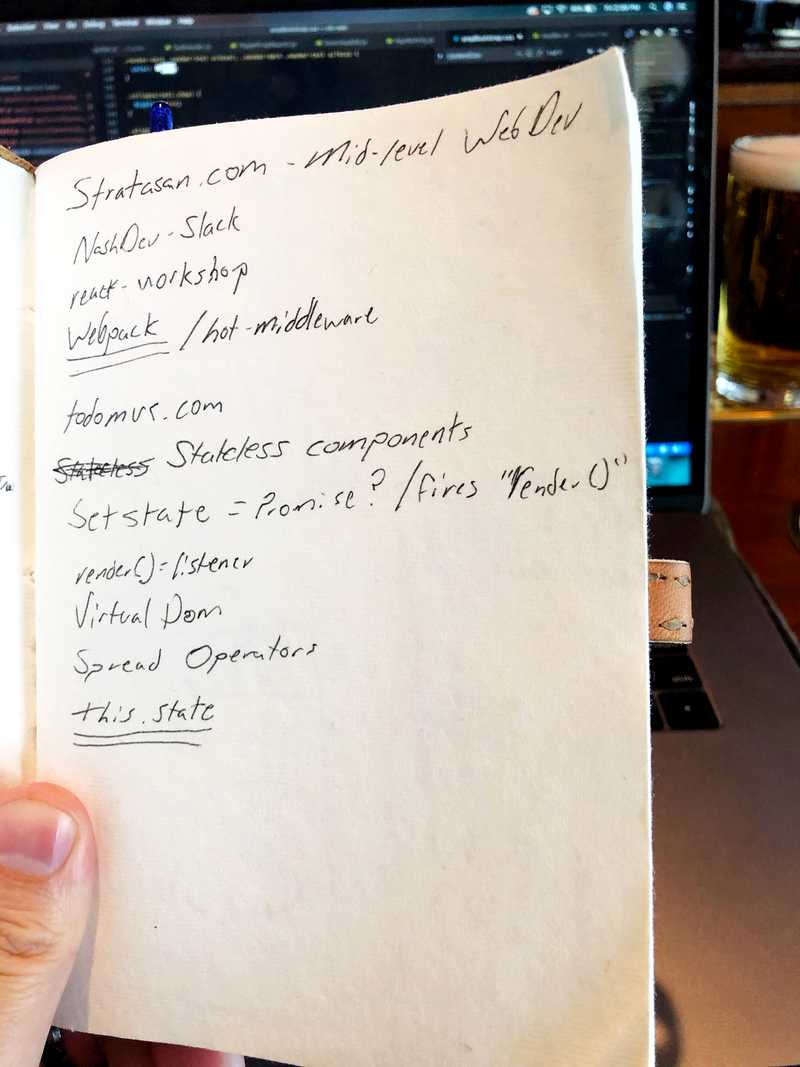 Stratasan.com - Mid-level WebDev
NashDev - Slack
react-workshop
Webpack /hot-middleware
todomvc.com
Stateless Stateless components
Setstate = Promise? /fires "render()"
render() = listener
Virtual Dom
Spread Operators
this.state